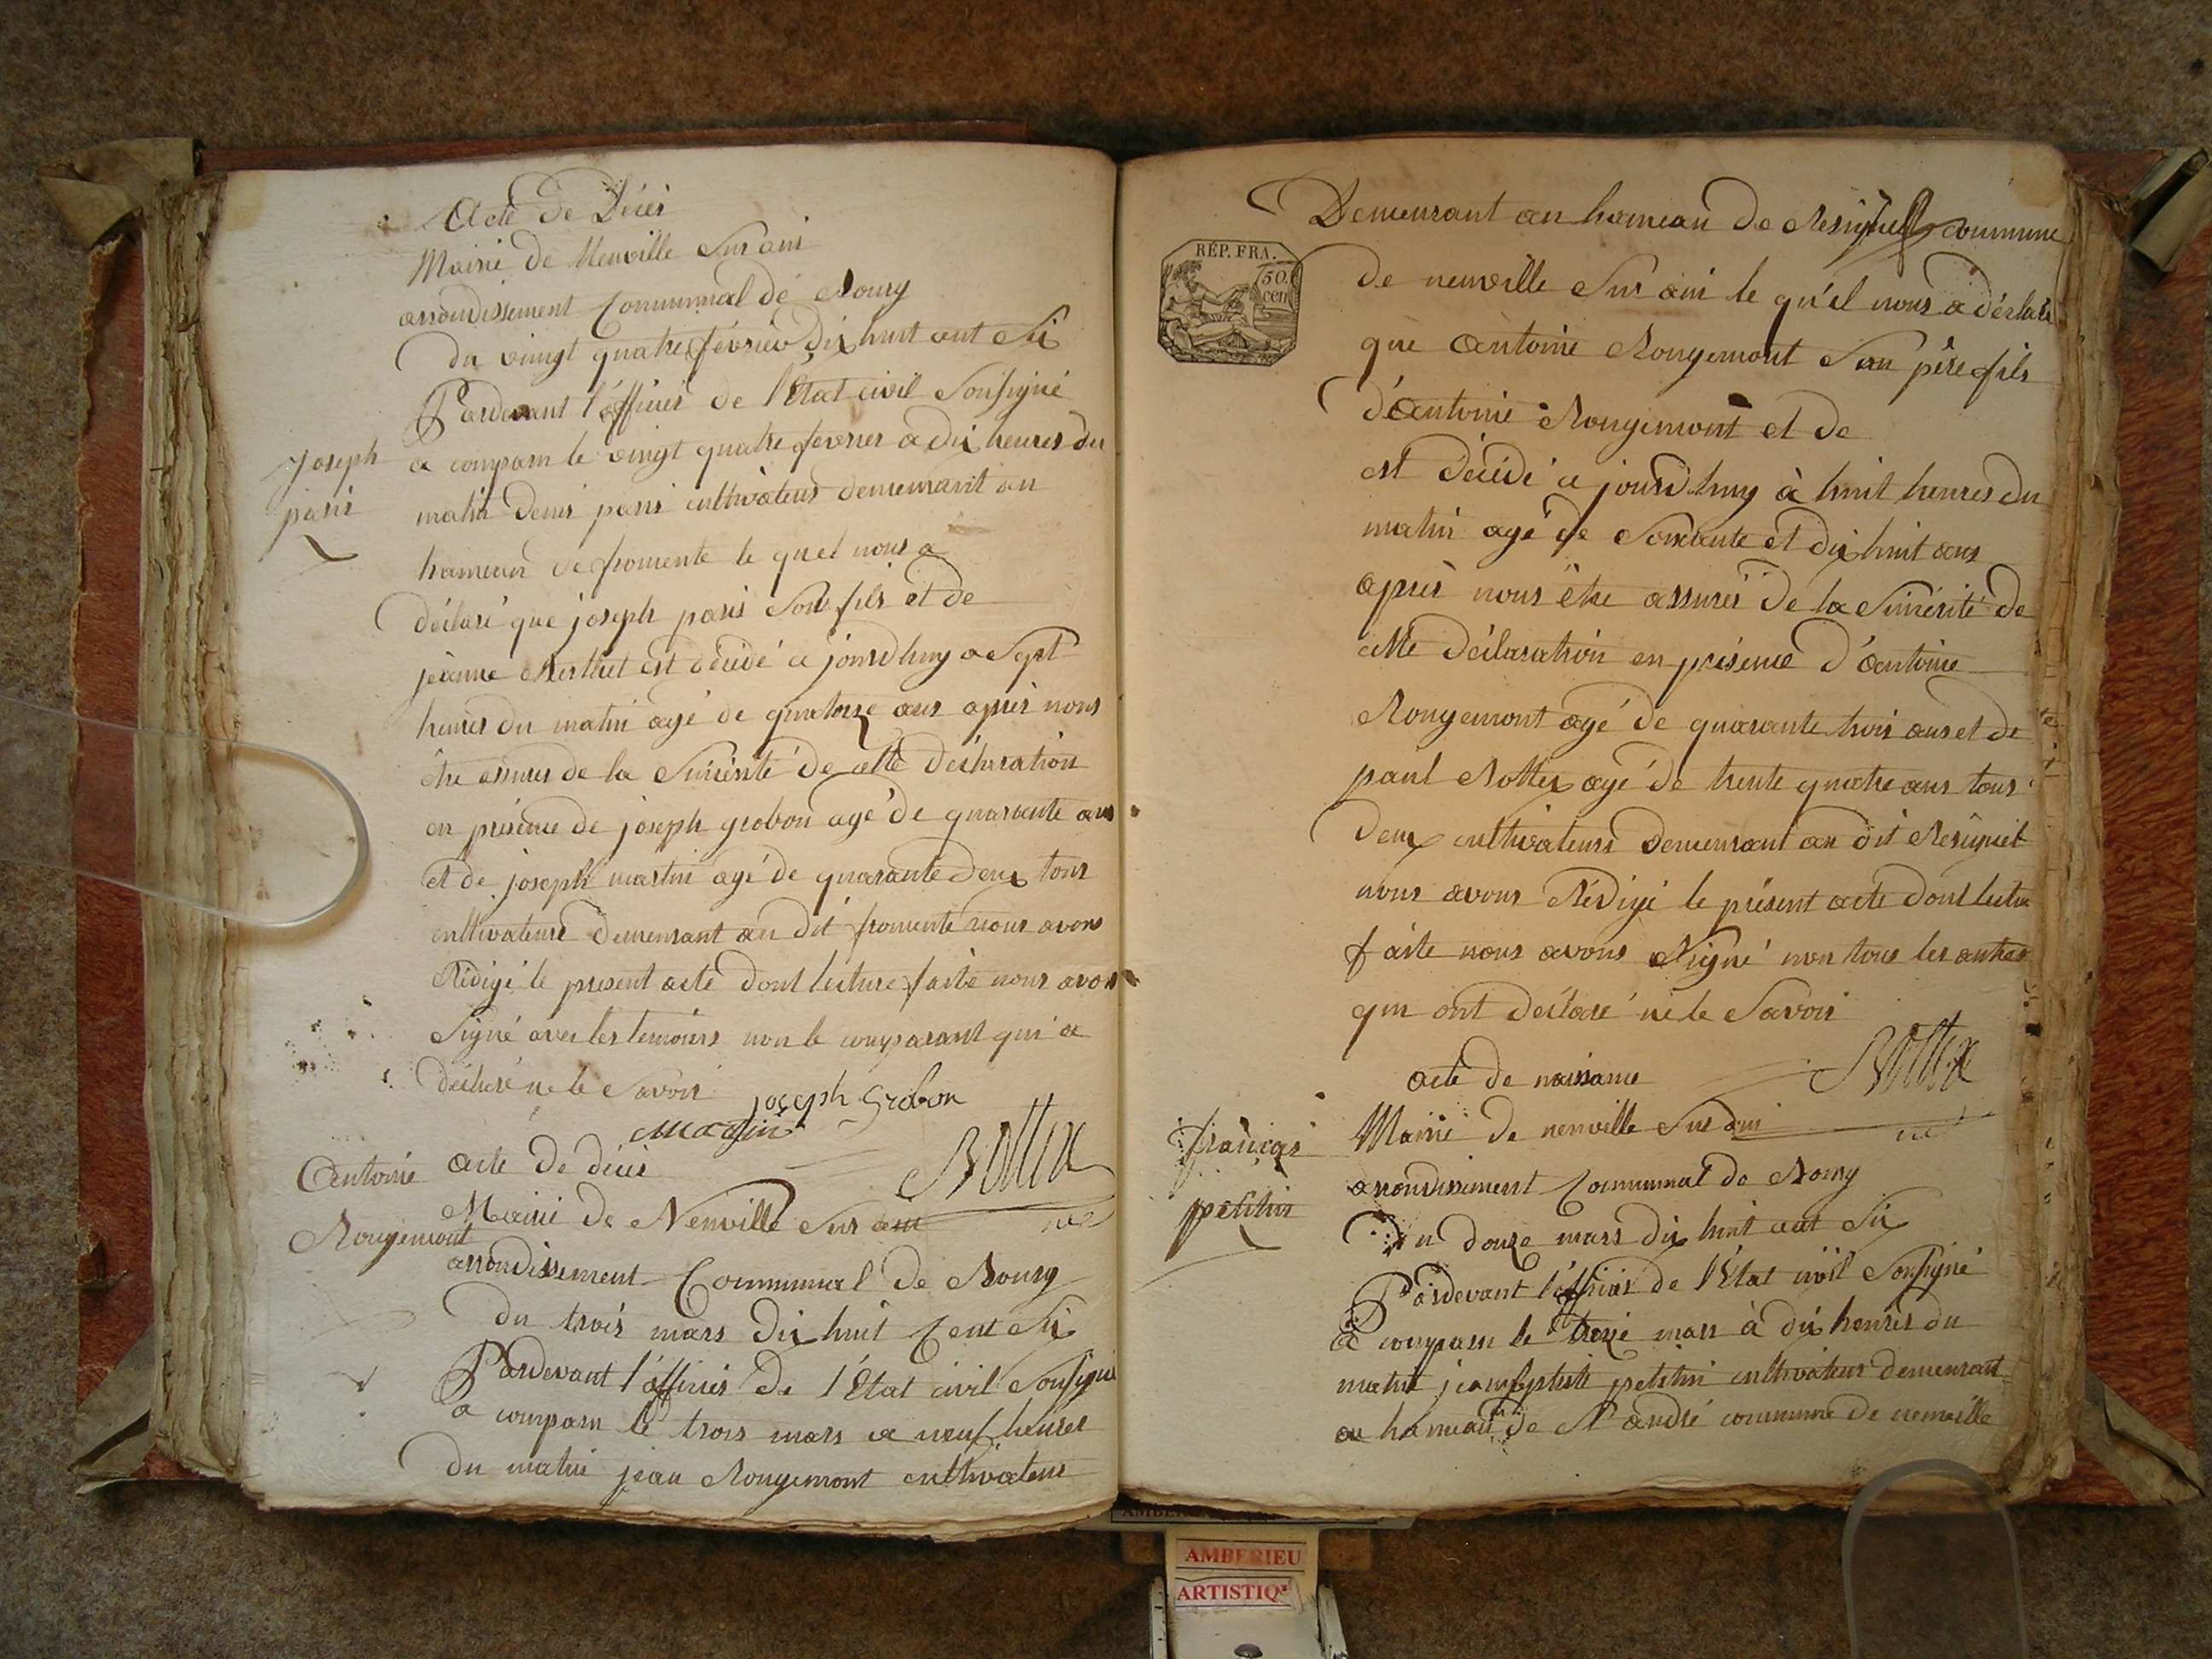 Acte de Décès
Mairie de Neuville Sur ain
arrondissement Communal de Bourg
Du vingt quatre février Dix huit cent Six
Pardevant l'officier de l'Etat civil Soussigné
Joseph
paris
a comparu le vingt quatre fevrier a dix heures du
matin Denis paris cultivateur demeurant au
hameau de fromente le quel nous a
déclaré que joseph paris Son fils et de
jeanne Berthet est décédé ce jourdhuy a Sept
heures du matin agé de quatorze ans après nous
être assurés de la Sincérité de cette déclaration
en présence de joseph grobon agé de quarante ans
et de joseph martin agé de quarante deux tous
cultivateurs demeurant au dit fromente nous avons
Rédigé le present acte dont lecture faite nous avons
Signé avec les temoins non le comparant qui a
déclaré ne le Savoir
joseph Grobon
Martin
Antoine
Rougemont
acte de décès
Mairie de Neuville Sur ain
arrondissement Communal de Bourg
du trois mars Dix huit Cent Six
Pardevant l'officier de l'Etat civil Soussigné
a comparu le trois mars a neuf heures
du matin jean Rougemont cultivateur
RÉP. FRA.
50.
cen
Demeurant au hameau de commune
de neuville Sur ain le qu'el nous a déclaré
que antoine Rougemont Son père fils
d'antoine Rougemont et de
est décédé ce jourdhuy à huit heures du
matin agé de Soixante et dix huit ans
après nous être assurés de la Sincérité de
cette déclaration en présence d'antoine
Rougemont agé de quarante trois ans et de
paul agé de trente quatre ans tous
deux cultivateurs demeurant au dit
nous avons Rédigé le présent acte dont lecture
faite nous avons Signé non tous les autres
qui ont déclaré ne le Savoir
acte de naissance
français
petitin
Mairie de neuville Sur ain
arrondissement Communal de Bourg
Du douze mars dix huit cent Six
Pardevant l'officier de l'Etat civil Soussigné
a comparu le mars à dix heures du
matin jean baptiste petitin cultivateur demeurant
au hameau de St andré commune de neuville
AMBERIEU
ARTISTIQ